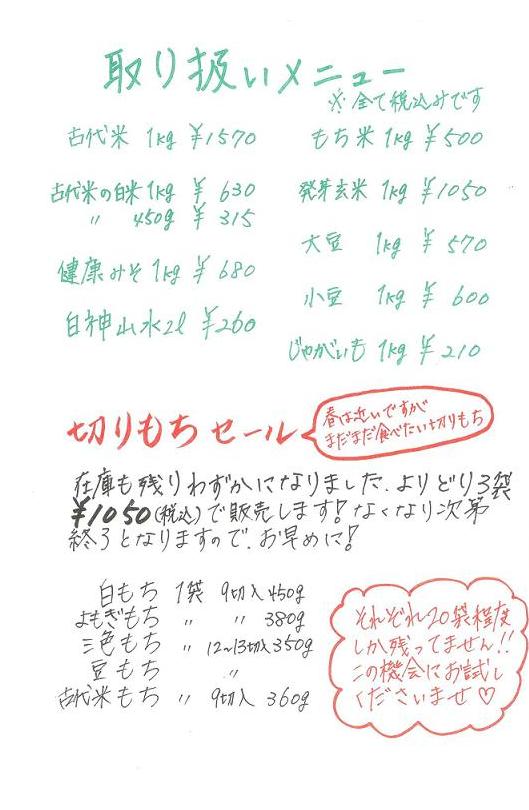 取り扱いメニュー
※全て税込みです
古代米 1kg ¥1570
古代米の白米 1kg ¥ 630
〃 450g ¥ 315
健康みそ 1kg ¥ 680
白神山水2l ¥260
もち米 1kg ¥500
発芽玄米 1kg ¥1050
大豆 1kg ¥ 570
小豆 1kg ¥ 600
じゃがいも 1kg ¥ 210
切りもち セール
春は近いですが
まだまだ食べたい切りもち
在庫も残りわずかになりました。よりどり3袋
¥1050(税込)で販売します!なくなり次第
終了となりますので、お早めに!
白もち 1袋 9切入 450g
よもぎもち 〃 〃 380g
三色もち 〃 12~13切入 350g
豆もち 〃 〃
古代米もち 〃 9切入 360g
それぞれ20袋程度
しか残ってません!!
この機会にお試し
くださいませ♡